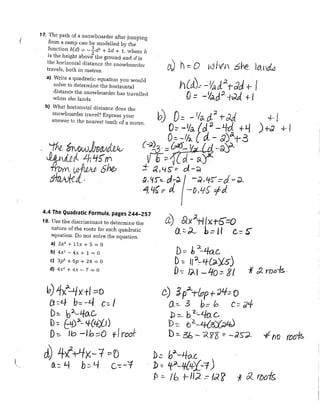 17. The path of a snowboarder after jumping
from a ramp can be modelled by the
function h(d) = -1/4d² + 2d + 1, where h
is the height above the ground and d is
the horizontal distance the snowboarder
travels, both in metres.
a) Write a quadratic equation you would
solve to determine the horizontal
distance the snowboarder has travelled
when she lands.
b) What horizontal distance does the
snowboarder travel? Express your
answer to the nearest tenth of a metre.
a) h=0 when she lands
h(d) = -1/2d²+2d+1
0 = -1/2d²+2d+1
b) 0 = -1/2d²+2d +1
0 = -1/2(d²-4d+4)+2+1
0 = -1/2(d-2)²+3
(-2)-3 = -1/2(d-2)²
√6 = √(d-2)²
± 2.45 = d-2
2.45 = d-2 -2.45 = d-2
4.45 = d -0.45 ≠ d
The snowboarder
landed 4.45m
from where she
started.
4.4 The Quadratic Formula, pages 244–257
18. Use the discriminant to determine the
nature of the roots for each quadratic
equation. Do not solve the equation.
a) 2x² + 11x + 5 = 0
b) 4x² − 4x + 1 = 0
c) 3p² + 6p + 24 = 0
d) 4x² + 4x − 7 = 0
a) 2x²+11x+5=0
a=2 b=11 c=5
D = b²-4ac
D = 11²-4(2)(5)
D = 121-40 = 81 2 roots
b) 4x²-4x+1=0
a=4 b=-4 c=1
D = b²-4ac
D = (-4)²-4(4)(1)
D = 16-16=0 1 root
c) 3p²+6p+24=0
a=3 b=6 c=24
D = b²-4ac
D = 6²-4(3)(24)
D = 36-288 = -252 no roots
d) 4x²+4x-7=0
a=4 b=4 c=-7
D = b²-4ac
D = 4²-4(4)(-7)
D = 16+112 = 128 2 roots